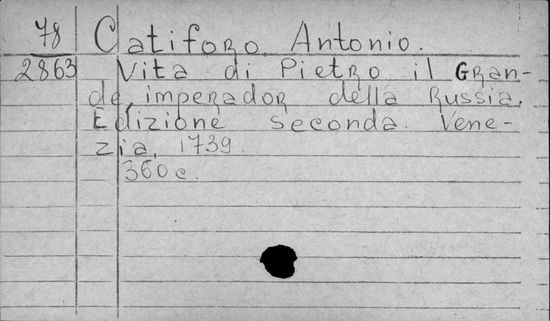 78 Catiforo Antonio.
2863 Vita di Pietro il Gran-
de, imperador della Russia.
Edizione seconda. Vene-
zia, 1739.
360 c.